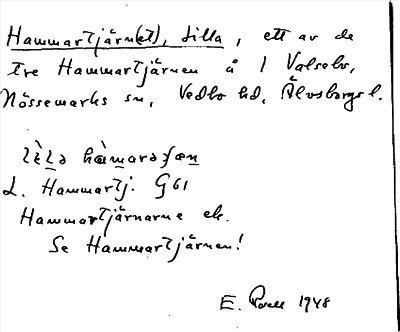 Hammartjärn(et), Lilla, ett av de
tre Hammartjärnen å 1 Valsebo,
Nössemarks sn, Vedbo hd, Älvsborgs l.
lɛ̀la hàmarəʃæn
L. Hammartj. G 61
Hammartjärnarne ek.
Se Hammartjärnen!
E. 1948